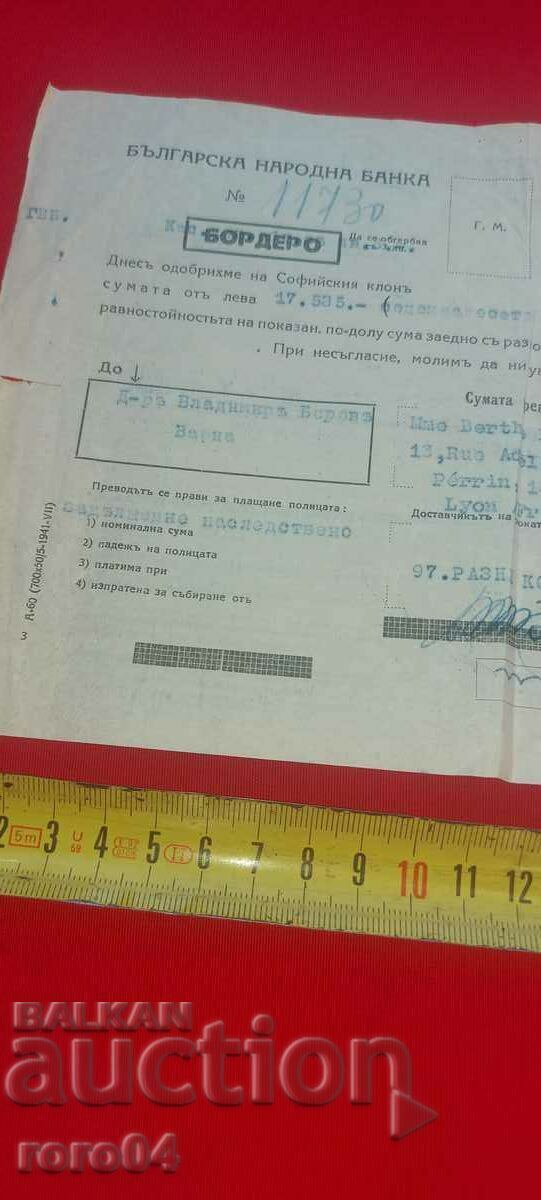 БЪЛГАРСКА НАРОДНА БАНКА
№ 11730
Г. М.
БОРДЕРО
Да се обгербва
Днесъ одобрихме на Софийския клонъ
сумата отъ лева 17.535.-
равностойностьта на показан. по-долу сума заедно съ раз
При несъгласие, молимъ да ни
До
Д-ръ Владимиръ Беровъ
Варна
Сумата
Mme Berth
13, Rue
Pérrin,
Lyon
Преводътъ се прави за плащане полицата:
наследствено
Доставчикътъ на
1) номинална сума
2) падежъ на полицата
3) платима при
4) изпратена за събиране отъ
97. РАЗН
А-60 (700х50/5-1941-VII)
3
2 5m 3 4 5 6 7 8 9 10 11 12
BALKAN
auction
roro04